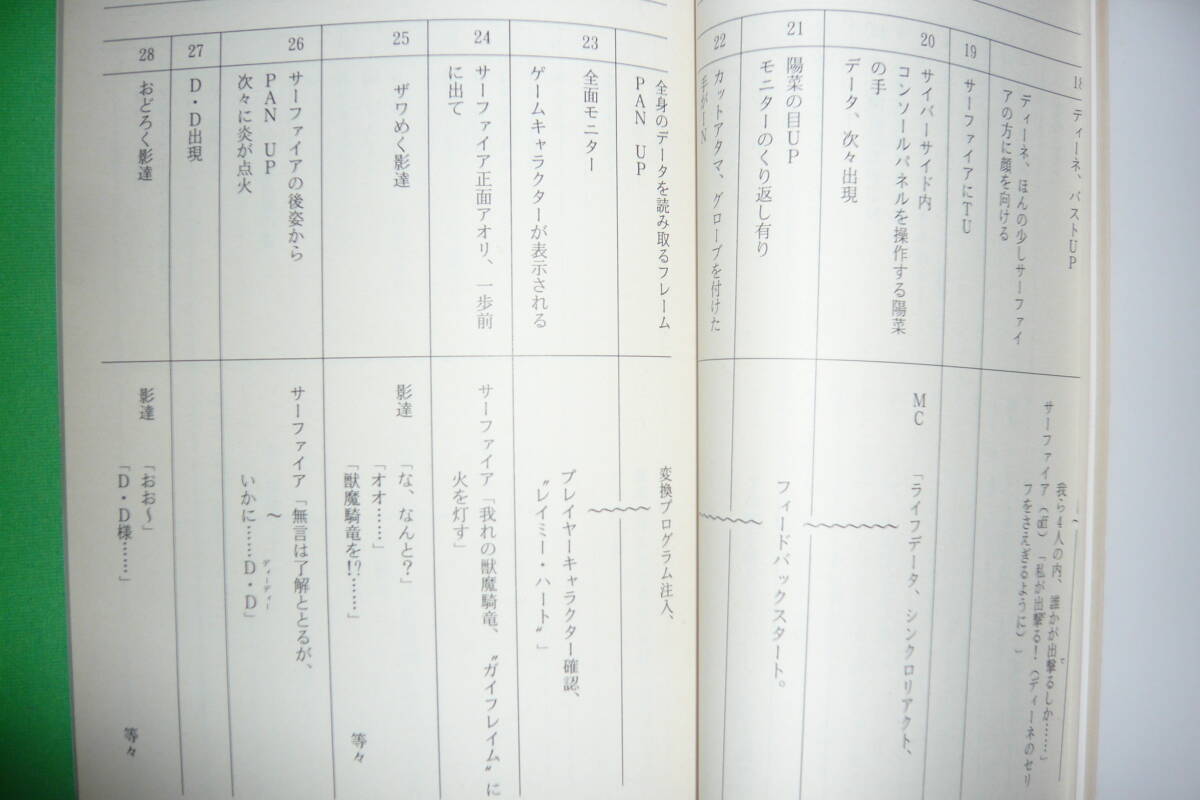 18
ディーネ、バストUP
ディーネ、ほんの少しサーファイ
アの方に顔を向ける
我ら4人の内、誰かが出撃るしか……」
で
サーファイア(off)「私が出撃る!(ディーネのセリ
フをさえぎるように)」
19
サーファイアにTU
20
サイバーサイド内
コンソールパネルを操作する陽菜
の手
データ、次々出現
MC
「ライフデータ、シンクロリアクト、
21
陽菜の目UP
モニターのくり返し有り
フィードバックスタート。
22
カットアタマ、グローブを付けた
手がIN
全身のデータを読み取るフレーム
PAN UP
変換プログラム注入、
23
全面モニター
ゲームキャラクターが表示される
プレイヤーキャラクター確認、
〝レイミー・ハート〟」
24
サーファイア正面アオリ、一歩前
に出て
サーファイア「我れの獣魔騎竜、〝ガイフレイム〟に
火を灯す」
25
ザワめく影達
影達 「な、なんと?」
「オオ……」
「獣魔騎竜を!?……」 等々
26
サーファイアの後姿から
PAN UP
次々に炎が点火
サーファイア「無言は了解ととるが、
〜
いかに……D・D」
ディーディー
27
D・D出現
28
おどろく影達
影達 「おお〜」
「D・D様……」 等々